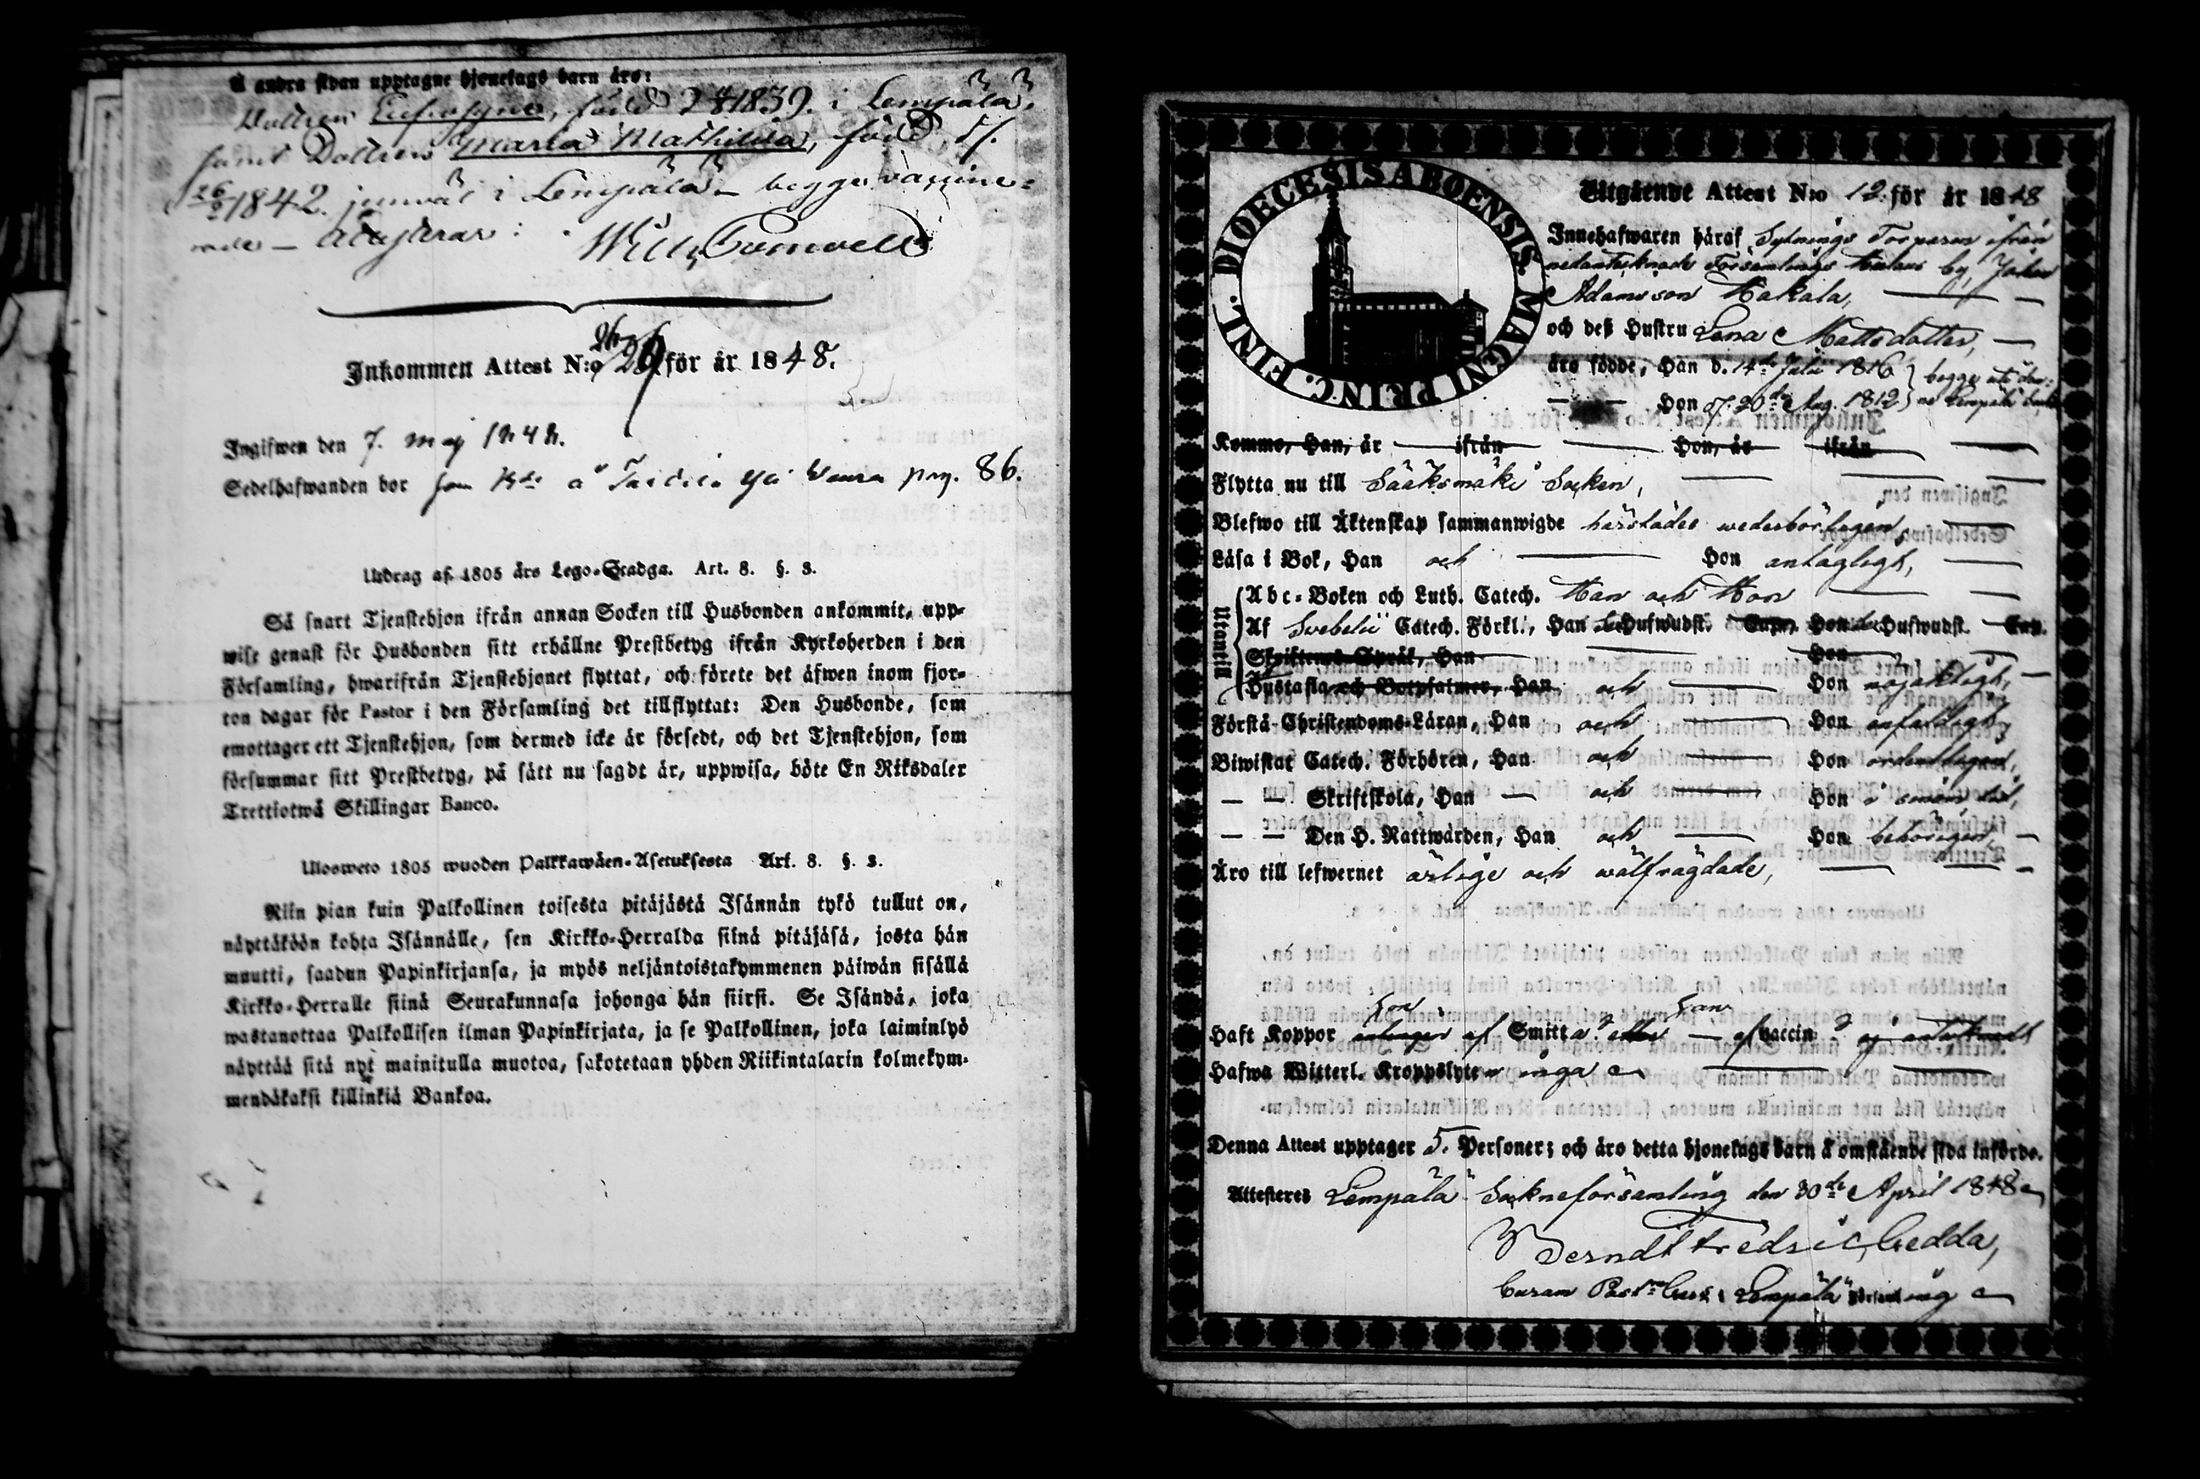 Å andra sidan upptagne hjonelags barn äro:
Dottren Eufrosyne, född 1839. i Lempäälä,
samt Dottren Maria Mathilda, född d.
26/2 1842. jemväl i Lempäälä – begge vaccine-
rade – Attesterar:
Inkommen Attest N:o 26 för år 1848.
Ingifwen den 7. maj 1848.
Sedelhafwanden bor pag. 86.
Utdrag af 1805 års Lego-Stadga. Art. 8. §. 3.
Så snart Tjenstehjon ifrån annan Socken till Husbonden ankommit, upp-
wise genast för Husbonden sitt erhållne Prestbetyg ifrån Kyrkoherden i den
Församling, hwarifrån Tjenstehjonet flyttat, och förete det äfwen inom fjor-
ton dagar för Pastor i den Församling det tillflyttat: Den Husbonde, som
emottager ett Tjenstehjon, som dermed icke är försedt, och det Tjenstehjon, som
försummar sitt Prestbetyg, på sätt nu sagdt är, uppwisa, böte En Riksdaler
Trettiotwå Skillingar Banco.
Ulosweto 1805 wuoden Palkkawäen-Asetuksesta Art. 8. §. 3.
Niin pian kuin Palkollinen toisesta pitäjästä Isännän tykö tullut on,
näyttäköön kohta Isännälle, sen Kirkko-Herralda siinä pitäjäsä, josta hän
muutti, saadun Papinkirjansa, ja myös neljäntoistakymmenen päiwän sisällä
Kirkko-Herralle siinä Seurakunnasa johonga hän siirsi. Se Isändä, joka
wastanottaa Palkollisen ilman Papinkirjata, ja se Palkollinen, joka laiminlyö
näyttää sitä nyt mainitulla muotoa, sakotetaan yhden Riikintalarin kolmekym-
mendäkaksi killinkiä Bankoa.
DIOECESIS ABOENSIS MAGNI PRINC. FINL.
Utgående Attest N:o 12. för år 1848
Innehafwaren häraf Sytnings Torparen ifrån
nedantecknade Församlings by, Johan
Adamsson Hakala,
och deß Hustru Lena Mattsdotter,
äro födde, Han d. 14de Julii 1816
Hon d. 20de Aug. 1812
Komme, Han, år ifrån Hon, år ifrån
Flytta nu till Sääksmäki Socken,
Blefwo till Äktenskap sammanwigde härstädes wederbörligen,
Läsa i Bok, Han och Hon antagligt,
Utantill
Abc-Boken och Luth. Catech. Han och Hon
Af Svebelii Catech. Förkl., Han Hufwudst. Hon Hufwudst.
Skriftens Språk, Han Hon
Hustafla och Botpsalmer, Han och Hon nöjaktigt,
Förstå Christendoms-Läran, Han och Hon enfaldigt,
Biwistat Catech. Förhören, Han och Hon ordentligen,
Skriftskola, Han och Hon i sinom tid,
Den H. Nattwarden, Han och Hon behörigen,
Äro till lefwernet ärlige och wälfrägdade,
Haft Koppor af Smitta eller af vaccin
Hafwa Witterl. Kroppslyten inga
Denna Attest upptager 5. Personer; och äro detta hjonelags barn å omstående sida införde.
Attesteres Lempäälä Sokneförsamling den 30de April 1848
Berndt Fredric Gedda,